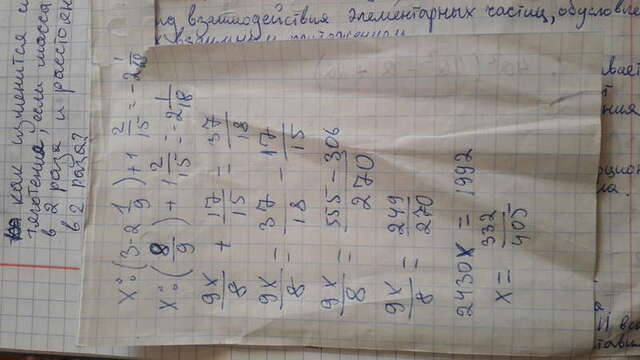 как изменится с
тяготения, если масса
в 2 раза и расстоян
в 2 раза?
x : (3 - 2 1/9) + 1 2/15 = - 2 1/18
x : (8/9) + 1 2/15 = - 2 1/18
9x/8 + 17/15 = 37/18
9x/8 = 37/18 - 17/15
9x/8 = 555 - 306/270
9x/8 = 249/270
2430x = 1992
x = 332/405
взаимодействия элементарных частиц, обуслов